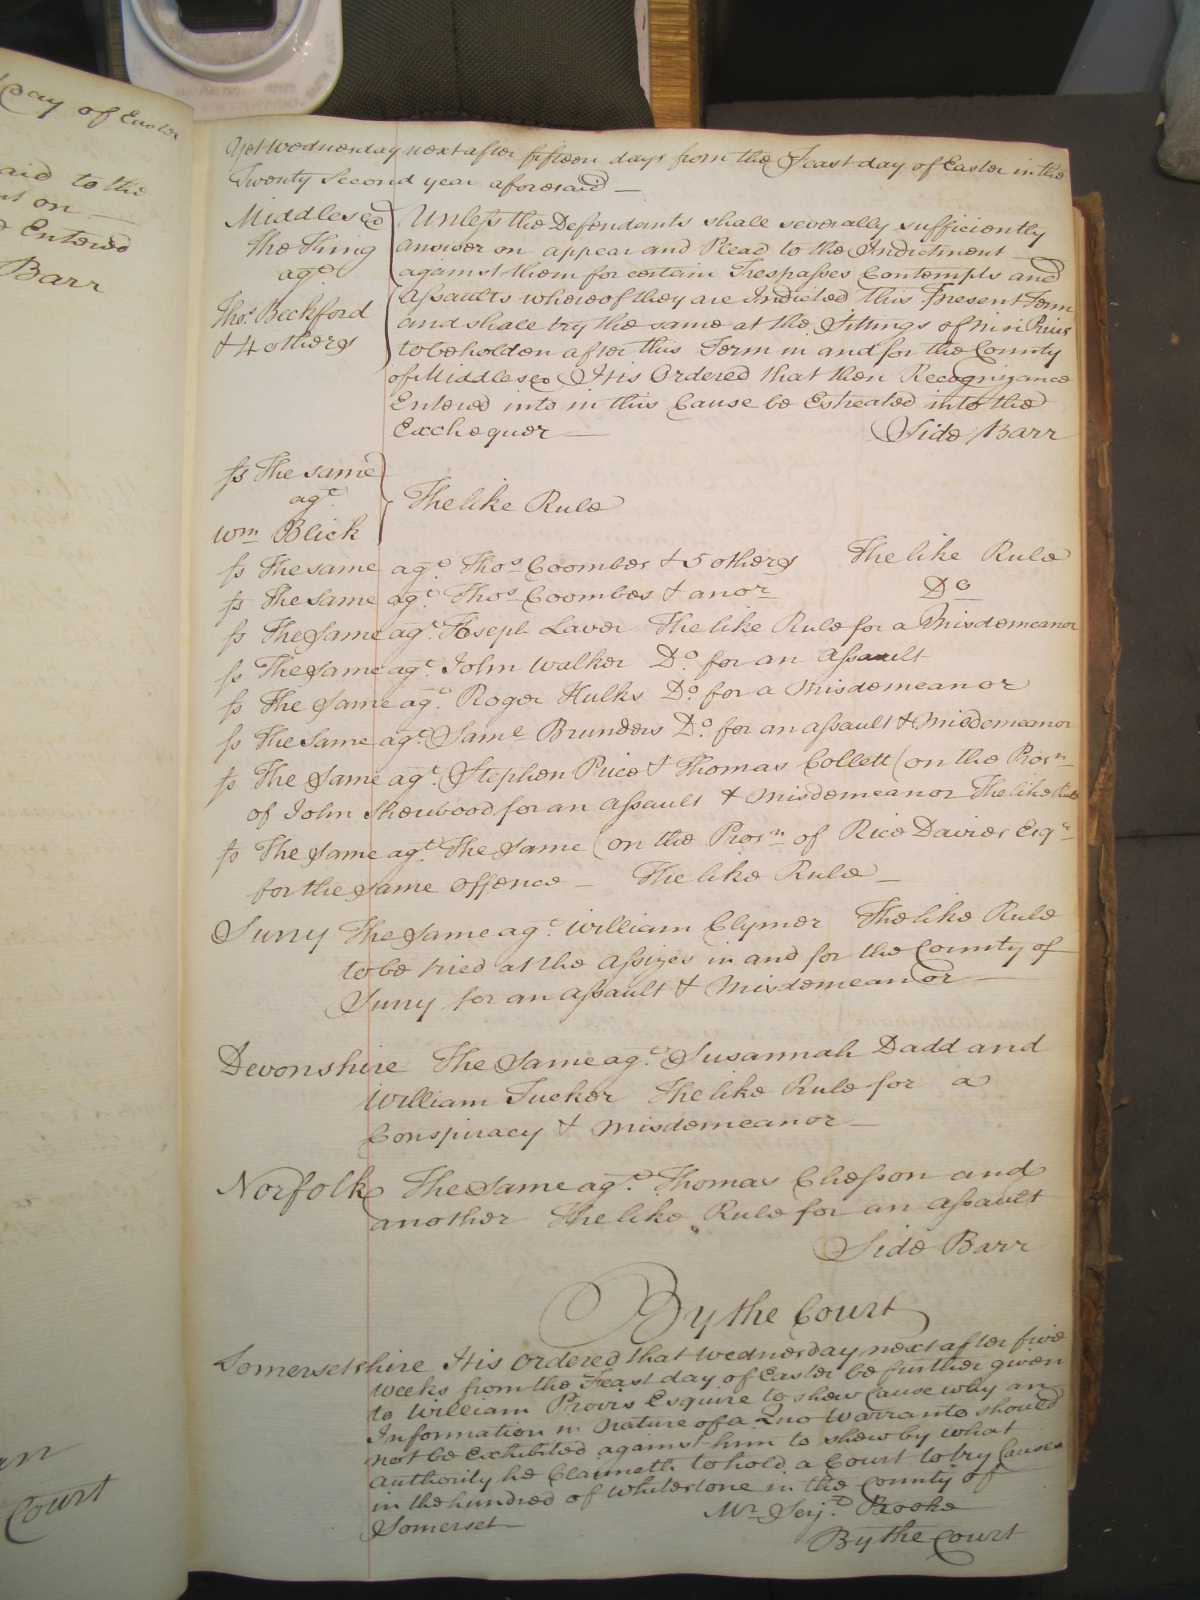 Day of Easter
aid to the
nt on —
Entered
Barr
an
Court
Yet Wednesday next after fifteen days from the Feast day of Easter in the
Twenty Second year aforesaid —
Middlesex
The King
agt
Thos. Beckford
& 4 others
Unless the Defendants shall severally sufficiently
answer on appear and Plead to the Indictment
against them for certain Trespasses Contempts and
Assaults whereof they are Indicted this Present Term
and shall try the same at the Sittings of Nisi Prius
to be holden after this Term in and for the County
of Middlesex It is Ordered that then Recognizance
Entered into in this Cause be Estreated into the
Exchequer —
Side Barr
ss The same
agt
Wm Blick
The like Rule
ss The same agt Thos Coombes & 5 others The like Rule
ss The same agt Thos Coombes & anor Do
ss The Same agt Joseph Laver The like Rule for a Misdemeanor
ss The Same agt John Walker Do for an Assault
ss The Same agt Roger Hulks Do for a Misdemeanor
ss The Same agt Saml Brunders Do for an assault & Misdemeanor
ss The Same agt Stephen Price & Thomas Collett (on the Prosn
of John Sherwood for an Assault & Misdemeanor The like Rule
ss The Same agt The Same (on the Prosn of Rice Davies Esqr
for the same offence — The like Rule —
Surry The Same agt William Clymer The like Rule
to be tried at the Assizes in and for the County of
Surry for an Assault & Misdemeanor —
Devonshire The Same agt Susannah Dadd and
William Tucker The like Rule for a
Conspiracy & Misdemeanor —
Norfolk The Same agt Thomas Chesson and
another The like Rule for an Assault
Side Barr
By the Court
Somersetshire It is Ordered that Wednesday next after five
weeks from the Feast day of Easter be further given
to William Provis Esquire to shew Cause why an
Information in Nature of a Quo Warranto should
not be Exhibited against him to shew by what
authority he Claimeth to hold a Court to try Causes
in the hundred of Whitestone in the County of
Somerset —
Mr Serjt Brooke
By the Court